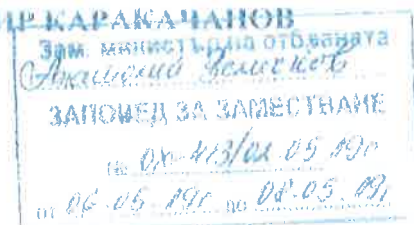 Р КАРАКАЧАНОВ
Зам. министър на отбраната
Атанас
ЗАПОВЕД ЗА ЗАМЕСТВАНЕ
№ ОХ-413/02.05.19г
от 06.05.19г. до 08.05.19г